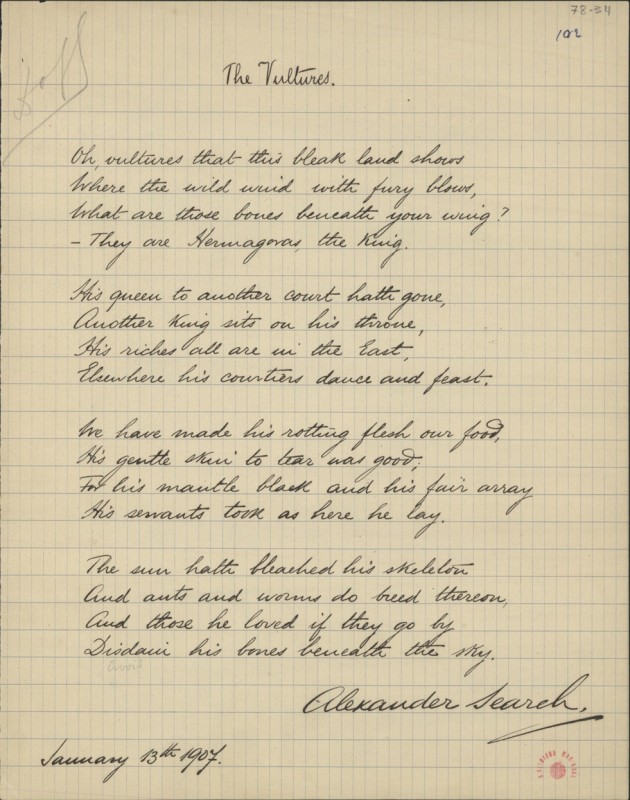 78-34
102
The Vultures.
Oh, vultures that this bleak land shows
Where the wild wind with fury blows,
What are those bones beneath your wing?
– They are Hermagoras, the King.
His queen to another court hath gone,
Another King sits on his throne,
His riches all are in the East,
Elsewhere his courtiers dance and feast.
We have made his rotting flesh our food,
His gentle skin to tear was good;
For his mantle black and his fair array
His servants took as here he lay.
The sun hath bleached his skeleton
And ants and worms do breed thereon,
And those he loved if they go by
Disdain his bones beneath the sky.
avoid
Alexander Search.
January 13th 1907.